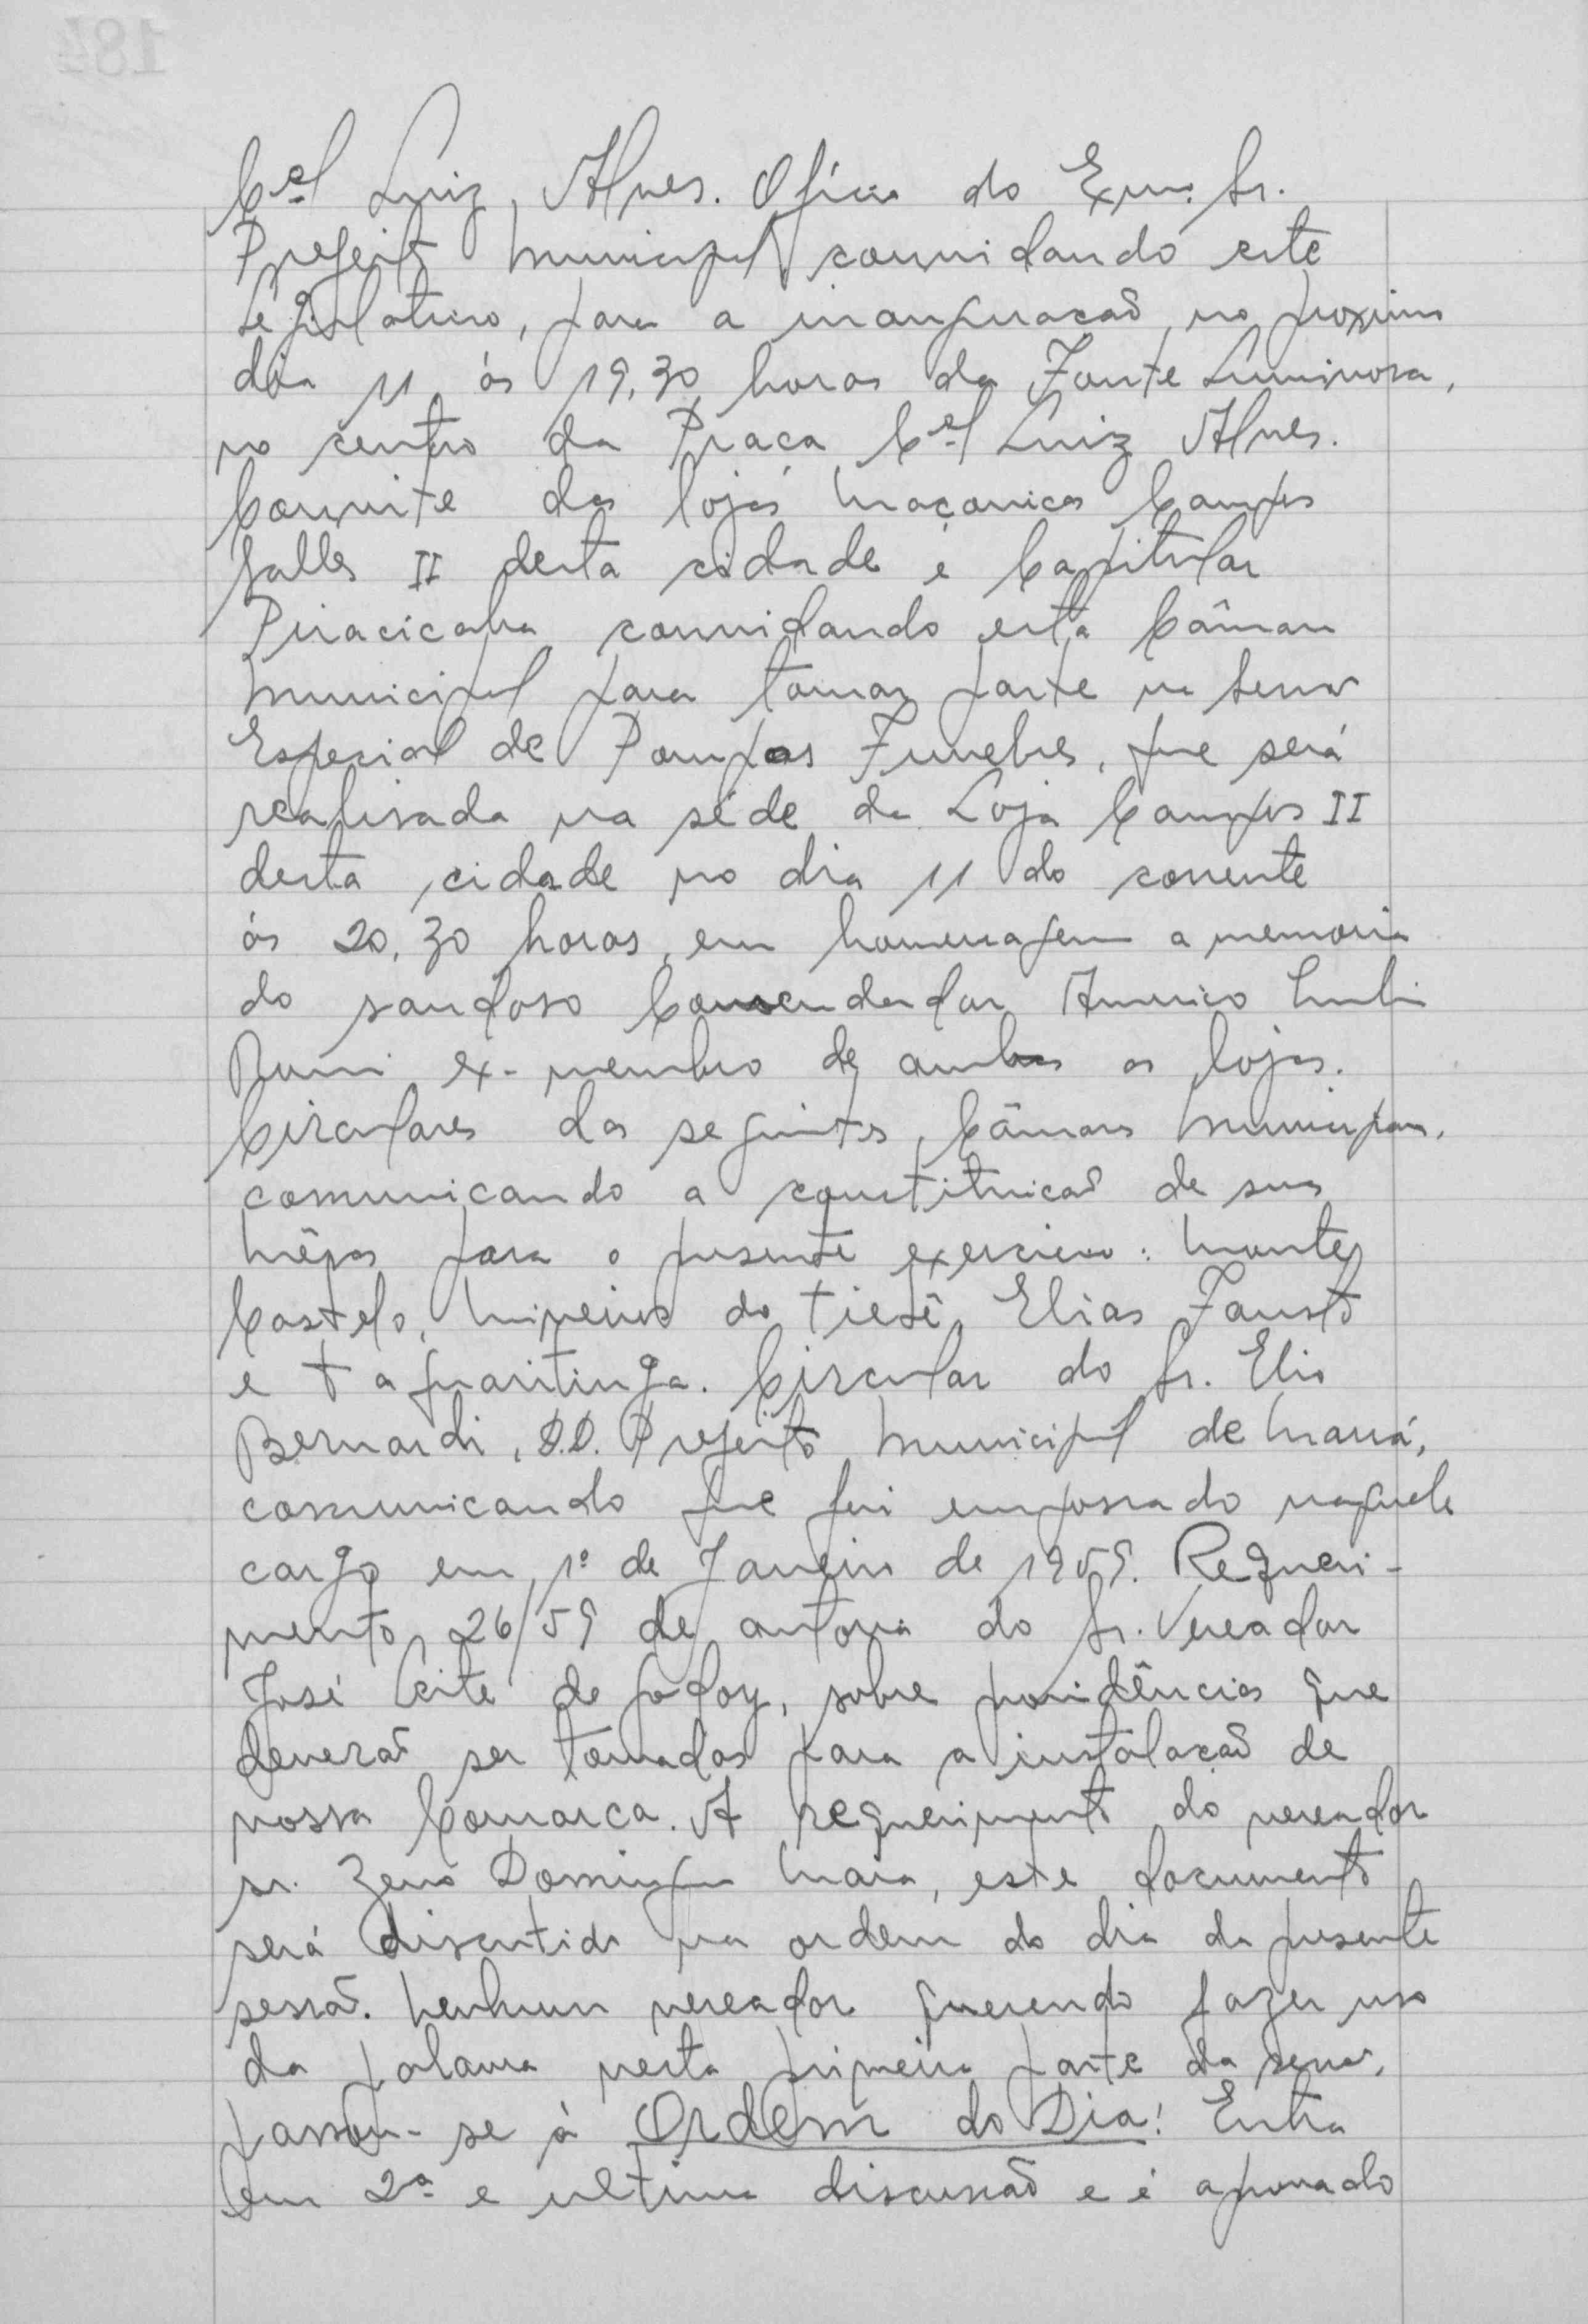 Cel Luiz Alves. Ofício do Exmo. Sr.
Prefeito Municipal, convidando este
Legislativo, para a inauguração, no proximo
dia 11, ás 19,30 horas da Fonte Luminosa,
no centro da Praça Cel Luiz Alves.
Convite das lojas Maçonicas Campos
Salles II desta cidade e Capitular
Piracicaba convidando esta Câmara
Municipal para tomar parte na Sessão
Especial de Pompas Funebres, que será
realisada na séde da Loja Campos II
desta cidade no dia 11 do corrente
ás 20,30 horas, em homenagem a memoria
do saudoso Comendador Americo
ex-membro de ambas as lojas.
Circulares das seguintes Câmaras Municipais,
comunicando a constituição de suas
Mêsas para o presente exercicio: Monte
Castelo, Mineiros do Tietê, Elias Fausto
e Taquaritinga. Circular do Sr. Elio
Bernardi, D.D. Prefeito Municipal de Mauá,
comunicando que foi empossado naquele
cargo em 1º de Janeiro de 1959. Requeri-
mento 26/59 de autoria do Sr. Vereador
José Leite de Godoy, sobre providências que
deverão ser tomadas para a instalação de
nossa Comarca. A requerimento do vereador
sr. Zeno Domingues Maia, este documento
será discutido na ordem do dia da presente
sessão. Nenhum vereador querendo fazer uso
da palavra nesta primeira parte da sessão,
passou-se á Ordem do Dia: Entra
em 2ª e ultima discussão e é aprovado